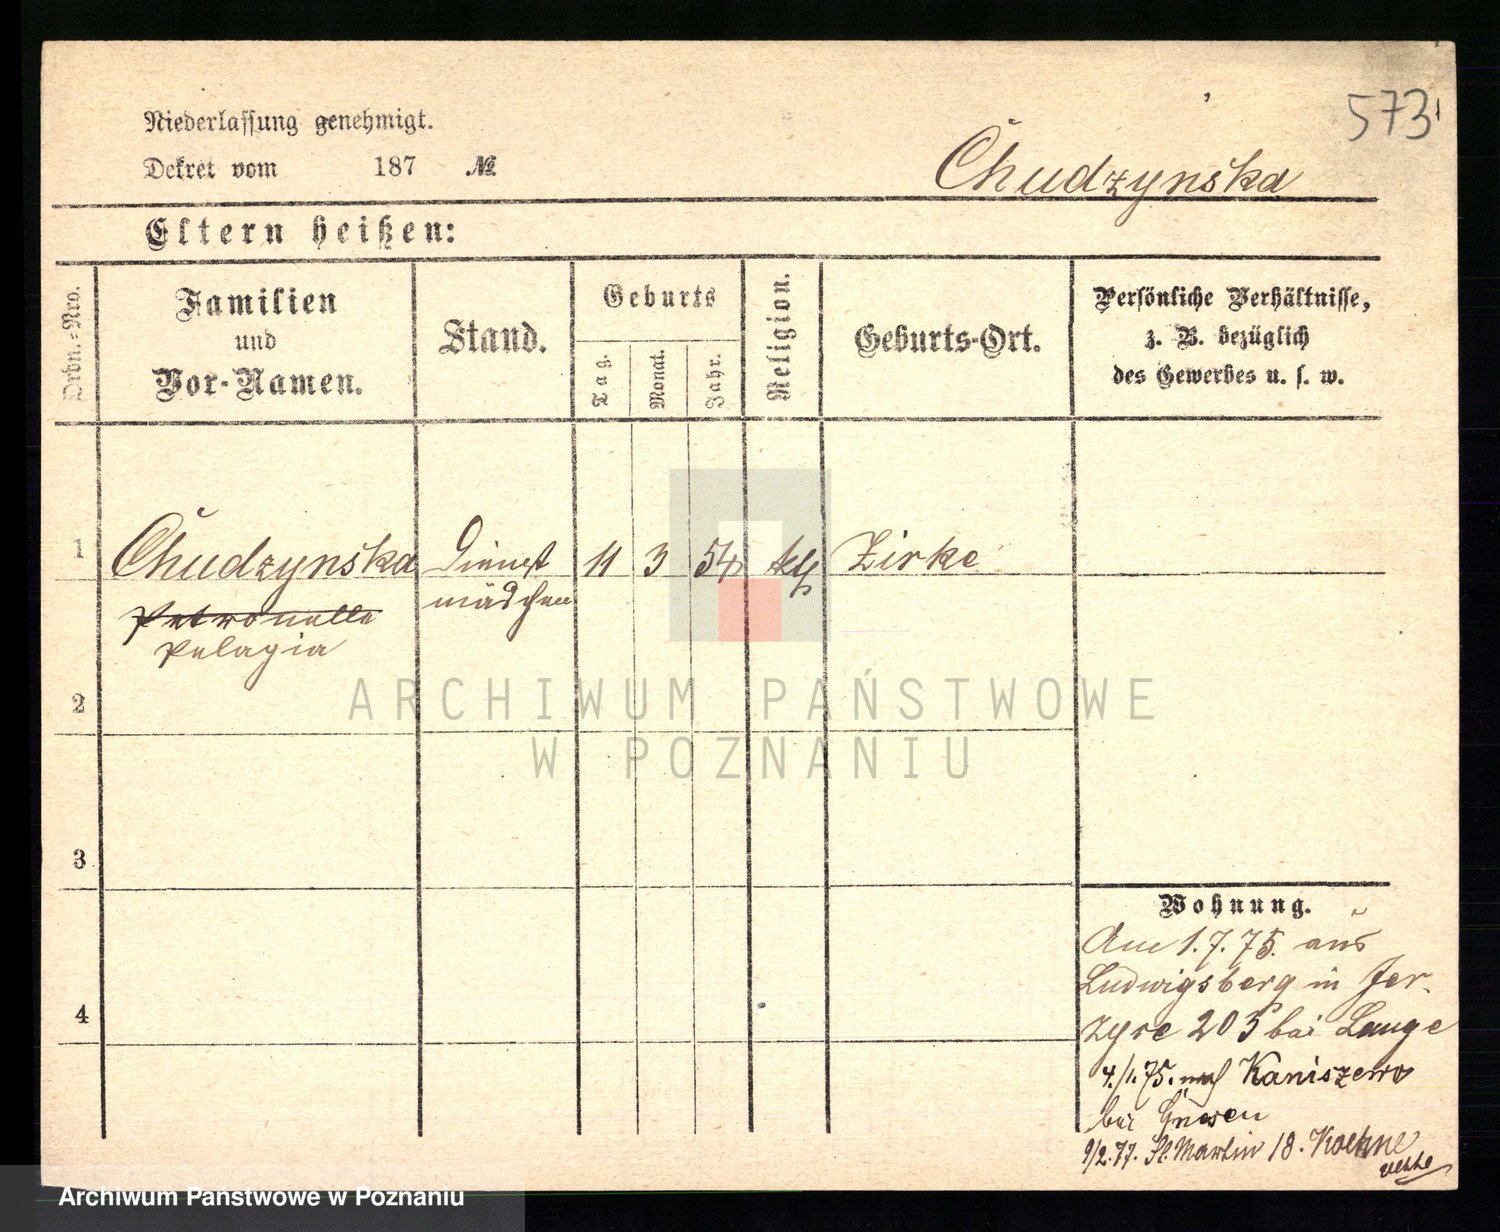 5731
Niederlassung genehmigt.
Dekret vom 187 №
Chudzynska
Eltern heißen:
Ordn.-Nro.
Familien
und
Vor-Namen.
Stand.
Geburts
Tag.
Monat.
Jahr.
Religion.
Geburts-Ort.
Persönliche Verhältnisse,
z. B. bezüglich
des Gewerbes u. s. w.
1
Chudzynska Dienst 11 3 54 kth Zirke
mädchen
Petronella
Pelagia
2
ARCHIWUM PAŃSTWOWE
W POZNANIU
3
4
Wohnung.
Am 1.7.75. aus
Ludwigsberg in Jer-
zyce 205 bei Lange
4./1.75. nach Kaniszewo
bei Gnesen
9/2.77. St. Martin 18. Koehne
Archiwum Państwowe w Poznaniu